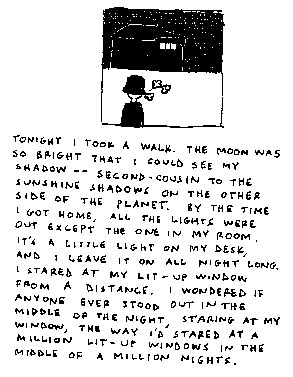 TONIGHT I TOOK A WALK. THE MOON WAS
SO BRIGHT THAT I COULD SEE MY
SHADOW -- SECOND-COUSIN TO THE
SUNSHINE SHADOWS ON THE OTHER
SIDE OF THE PLANET. BY THE TIME
I GOT HOME, ALL THE LIGHTS WERE
OUT EXCEPT THE ONE IN MY ROOM.
IT'S A LITTLE LIGHT ON MY DESK,
AND I LEAVE IT ON ALL NIGHT LONG.
I STARED AT MY LIT-UP WINDOW
FROM A DISTANCE. I WONDERED IF
ANYONE EVER STOOD OUT IN THE
MIDDLE OF THE NIGHT, STARING AT MY
WINDOW, THE WAY I'D STARED AT A
MILLION LIT-UP WINDOWS IN THE
MIDDLE OF A MILLION NIGHTS.